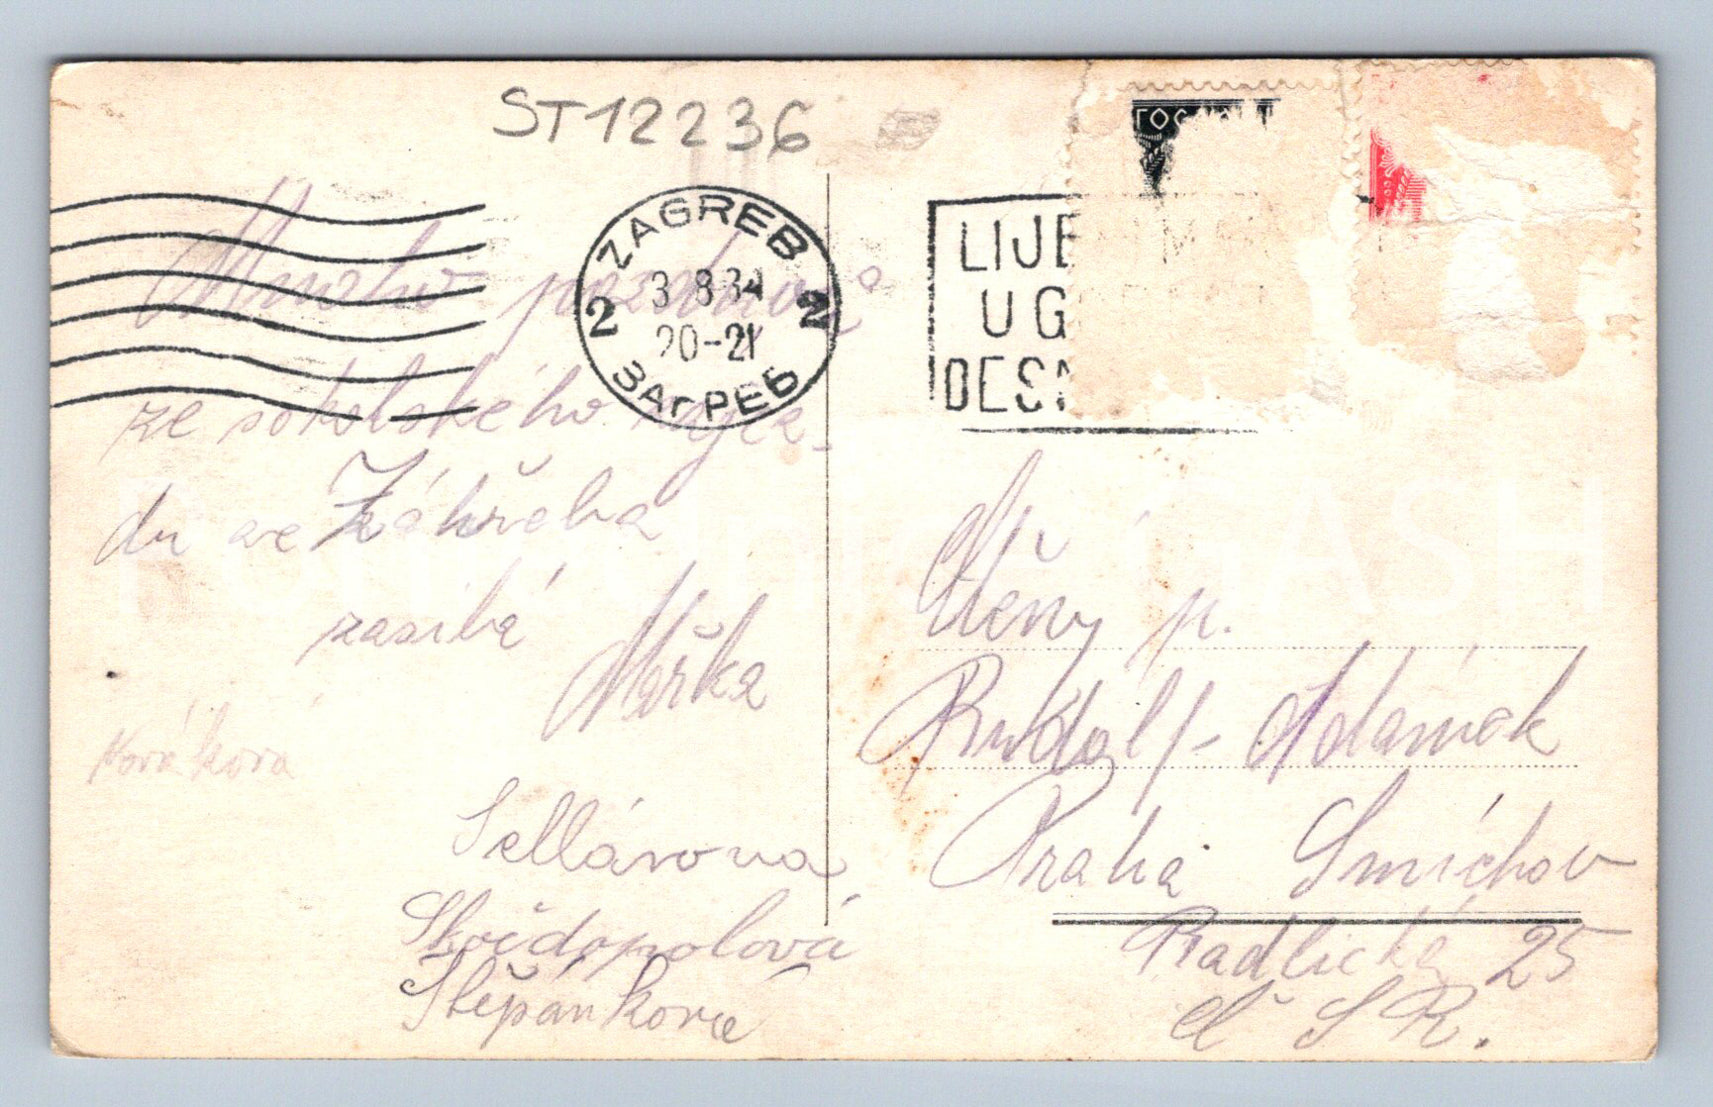 ST12236
ZAGREB
2 3 8 34 2
20-21
ЗАГРЕБ
LIJE
U G
DES
ГОС
Mnoho pozdravů
ze sokolského zájez-
du ze Záhřeba
zasílá
Mařka
Nováková
Sellárova
Skočdopolová
Štěpánková
Ctěný p.
Rudolf Adámek
Praha Smíchov
Radlická 25
Č S R.